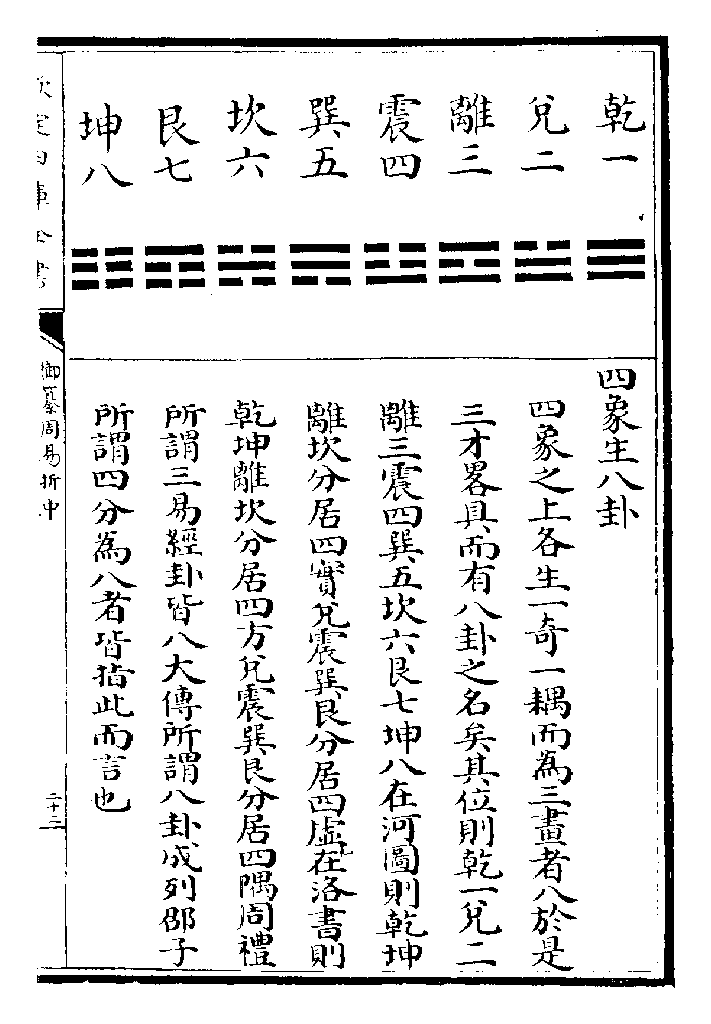 乾一
兌二
離三
震四
巽五
坎六
艮七
坤八
四象生八卦
四象之上各生一奇一耦而為三畫者八於是
三才畧具而有八卦之名矣其位則乾一兌二
離三震四巽五坎六艮七坤八在河圖則乾坤
離坎分居四實兌震巽艮分居四虛在洛書則
乾坤離坎分居四方兌震巽艮分居四隅周禮
所謂三易經卦皆八大傳所謂八卦成列邵子
所謂四分為八者皆指此而言也
欽定四庫全書
御纂周易折中
二十二